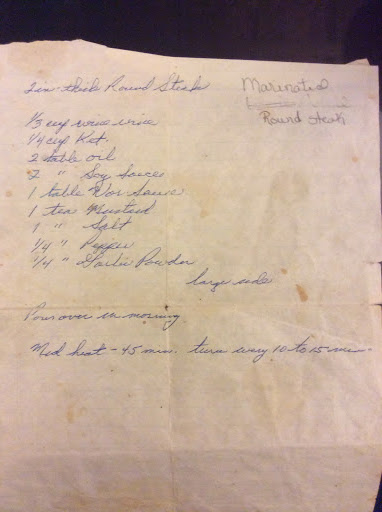 2 in. thick Round Steak
Marinated
Round steak
1/3 cup wine
1/4 cup Ket.
2 table oil
2 " Soy Sauce
1 table Wor Sauce
1 tea Mustard
1 " Salt
1/4 " Pepper
1/4 " Garlic Powder
large side
Pour over in morning
Med heat - 45 min. turn every 10 to 15 min.